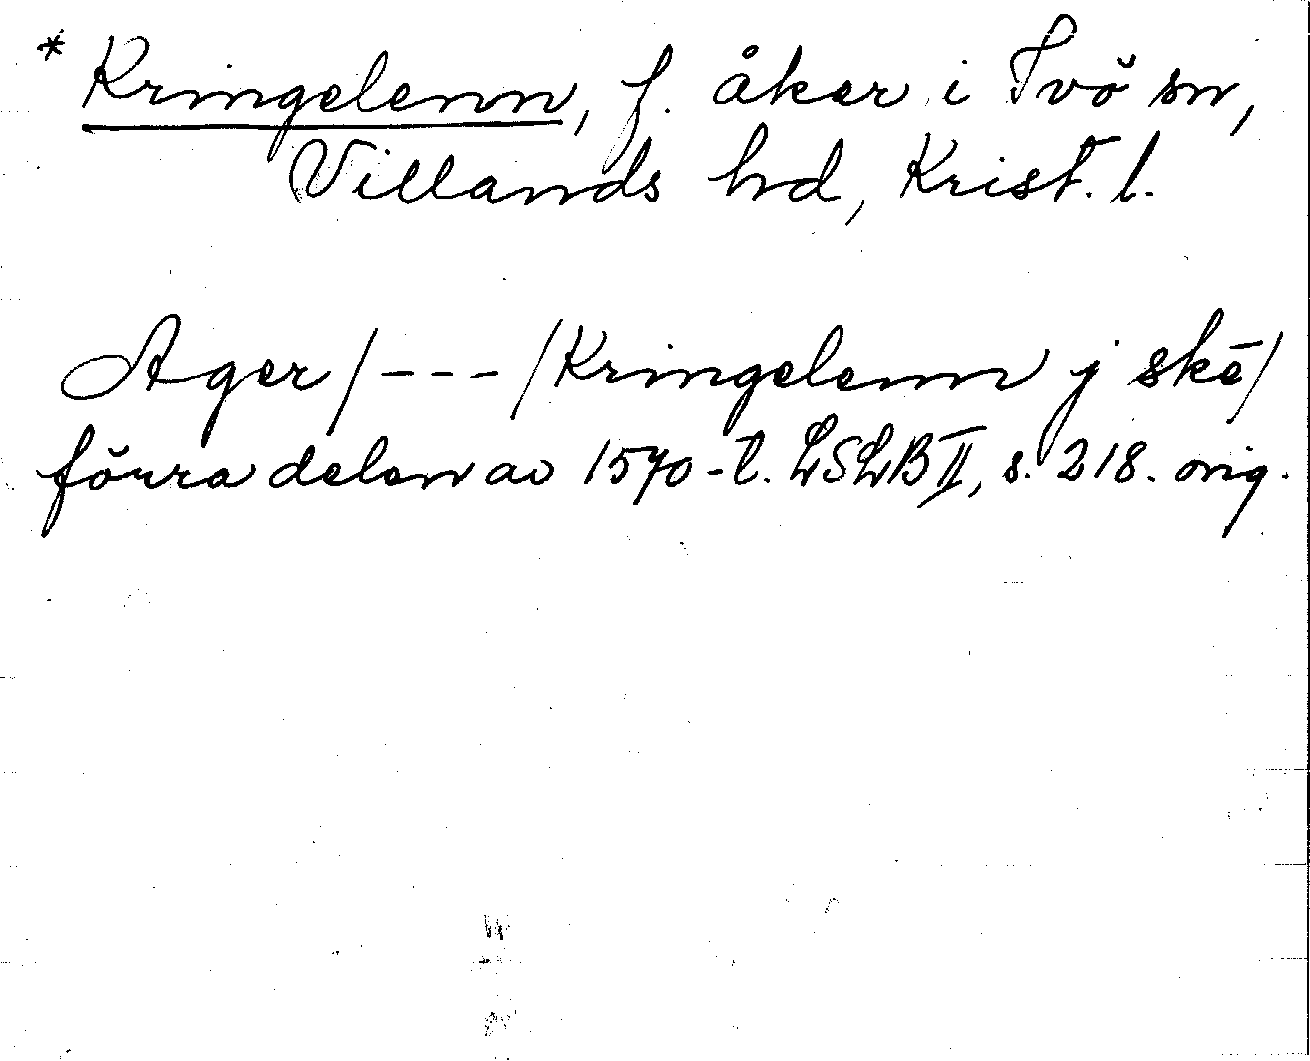 * Kringelenn, f. åker i Ivö sn,
Villands hd, Krist. l.
Ager/---/Kringelenn j skē/
förra delen av 1570-t. LSLB II, s. 218. orig.